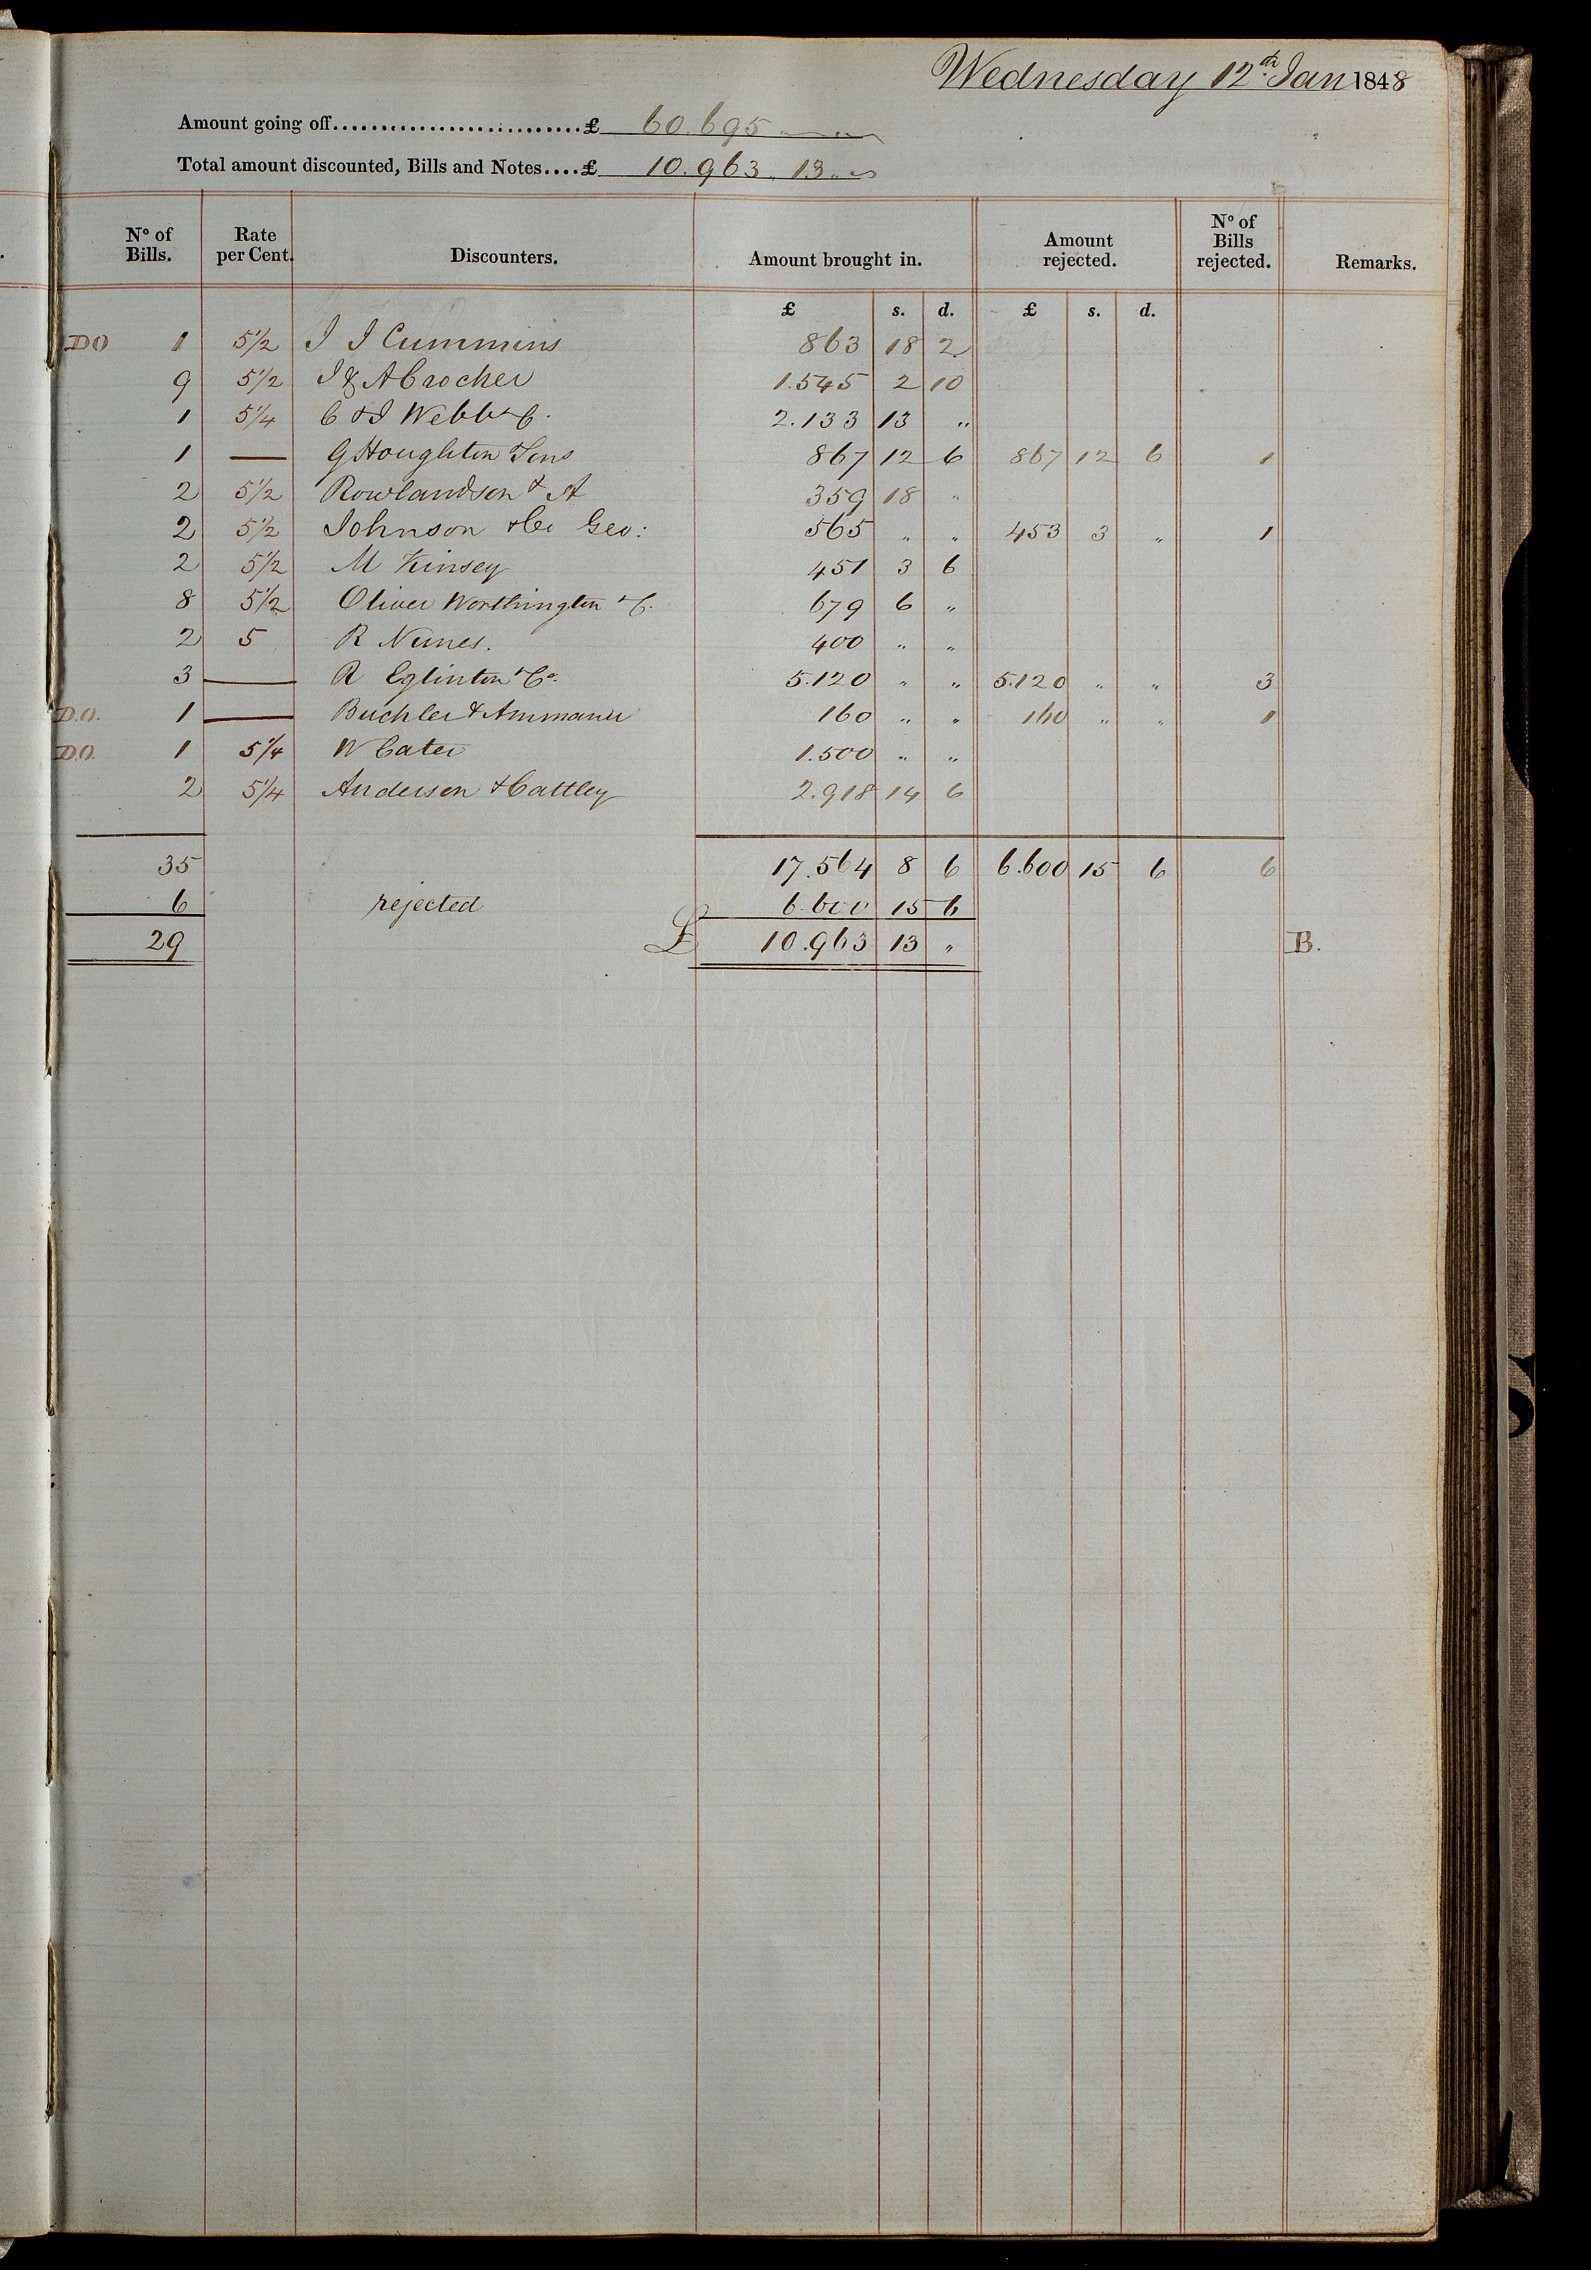 Wednesday 12th Jan 1848
Amount going off...........................£ 60.695 " "
Total amount discounted, Bills and Notes....£ 10.963 " 13 " "
No of Bills. Rate per Cent. Discounters. Amount brought in. Amount rejected. No of Bills rejected. Remarks.
£ s. d. £ s. d.
DO 1 5 1/2 J J Cummins 863 18 2
9 5 1/2 J & A Crocher 1.545 2 10
1 5 1/4 C & J Webb & C. 2.133 13 "
1 — G Houghton & Sons 867 12 6 867 12 6 1
2 5 1/2 Rowlandson & A 359 18 "
2 5 1/2 Johnson & Co Geo: 565 " " 453 3 " 1
2 5 1/2 M Kinsey 451 3 6
8 5 1/2 Oliver Worthington & C. 679 6 "
2 5 R Nunes. 400 " "
3 — R Eglinton & Co. 5.120 " " 5.120 " " 3
D.O. 1 — Buchler & Ammann 160 " " 160 " " 1
D.O. 1 5 1/4 W Cater 1.500 " "
2 5 1/4 Anderson & Cattley 2.918 14 6
35 17.564 8 6 6.600 15 6 6
6 rejected 6.600 15 6
29 £ 10.963 13 " B.